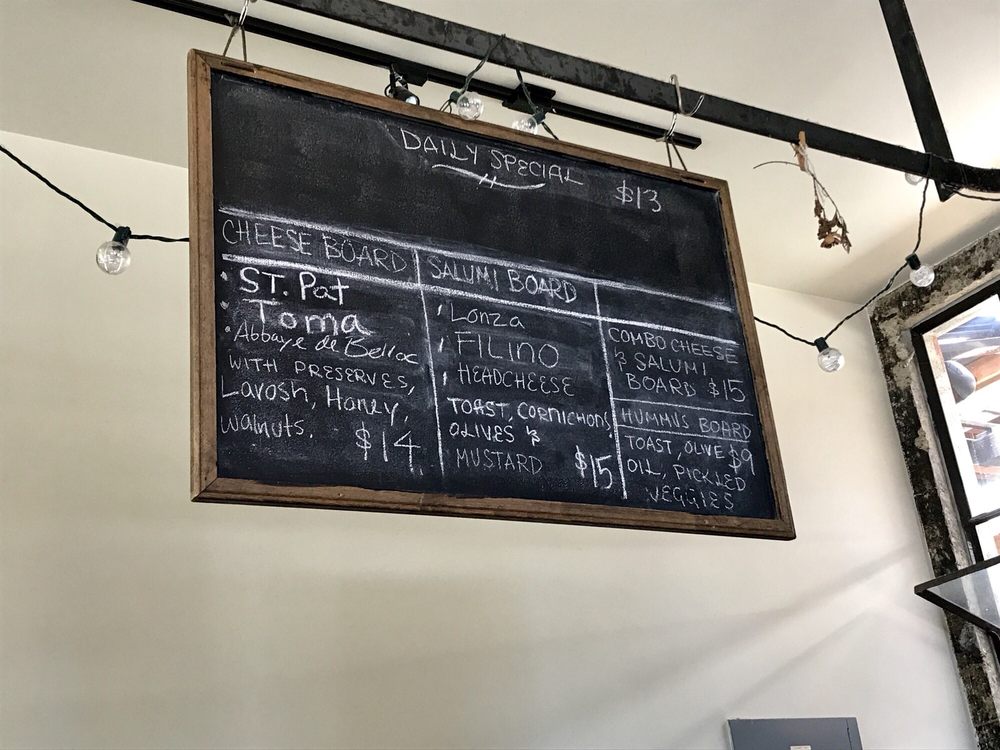 DAILY SPECIAL
$13
CHEESE BOARD
• ST. Pat
• Toma
• Abbaye de Belloc
WITH PRESERVES,
Lavosh, Honey,
walnuts.
$14
SALUMI BOARD
Lonza
FILINO
HEADCHEESE
TOAST, CORNICHONS
OLIVES &
MUSTARD
$15
COMBO CHEESE
& SALUMI
BOARD $15
HUMMUS BOARD
TOAST, OLIVE $9
OIL, PICKLED
VEGGIES